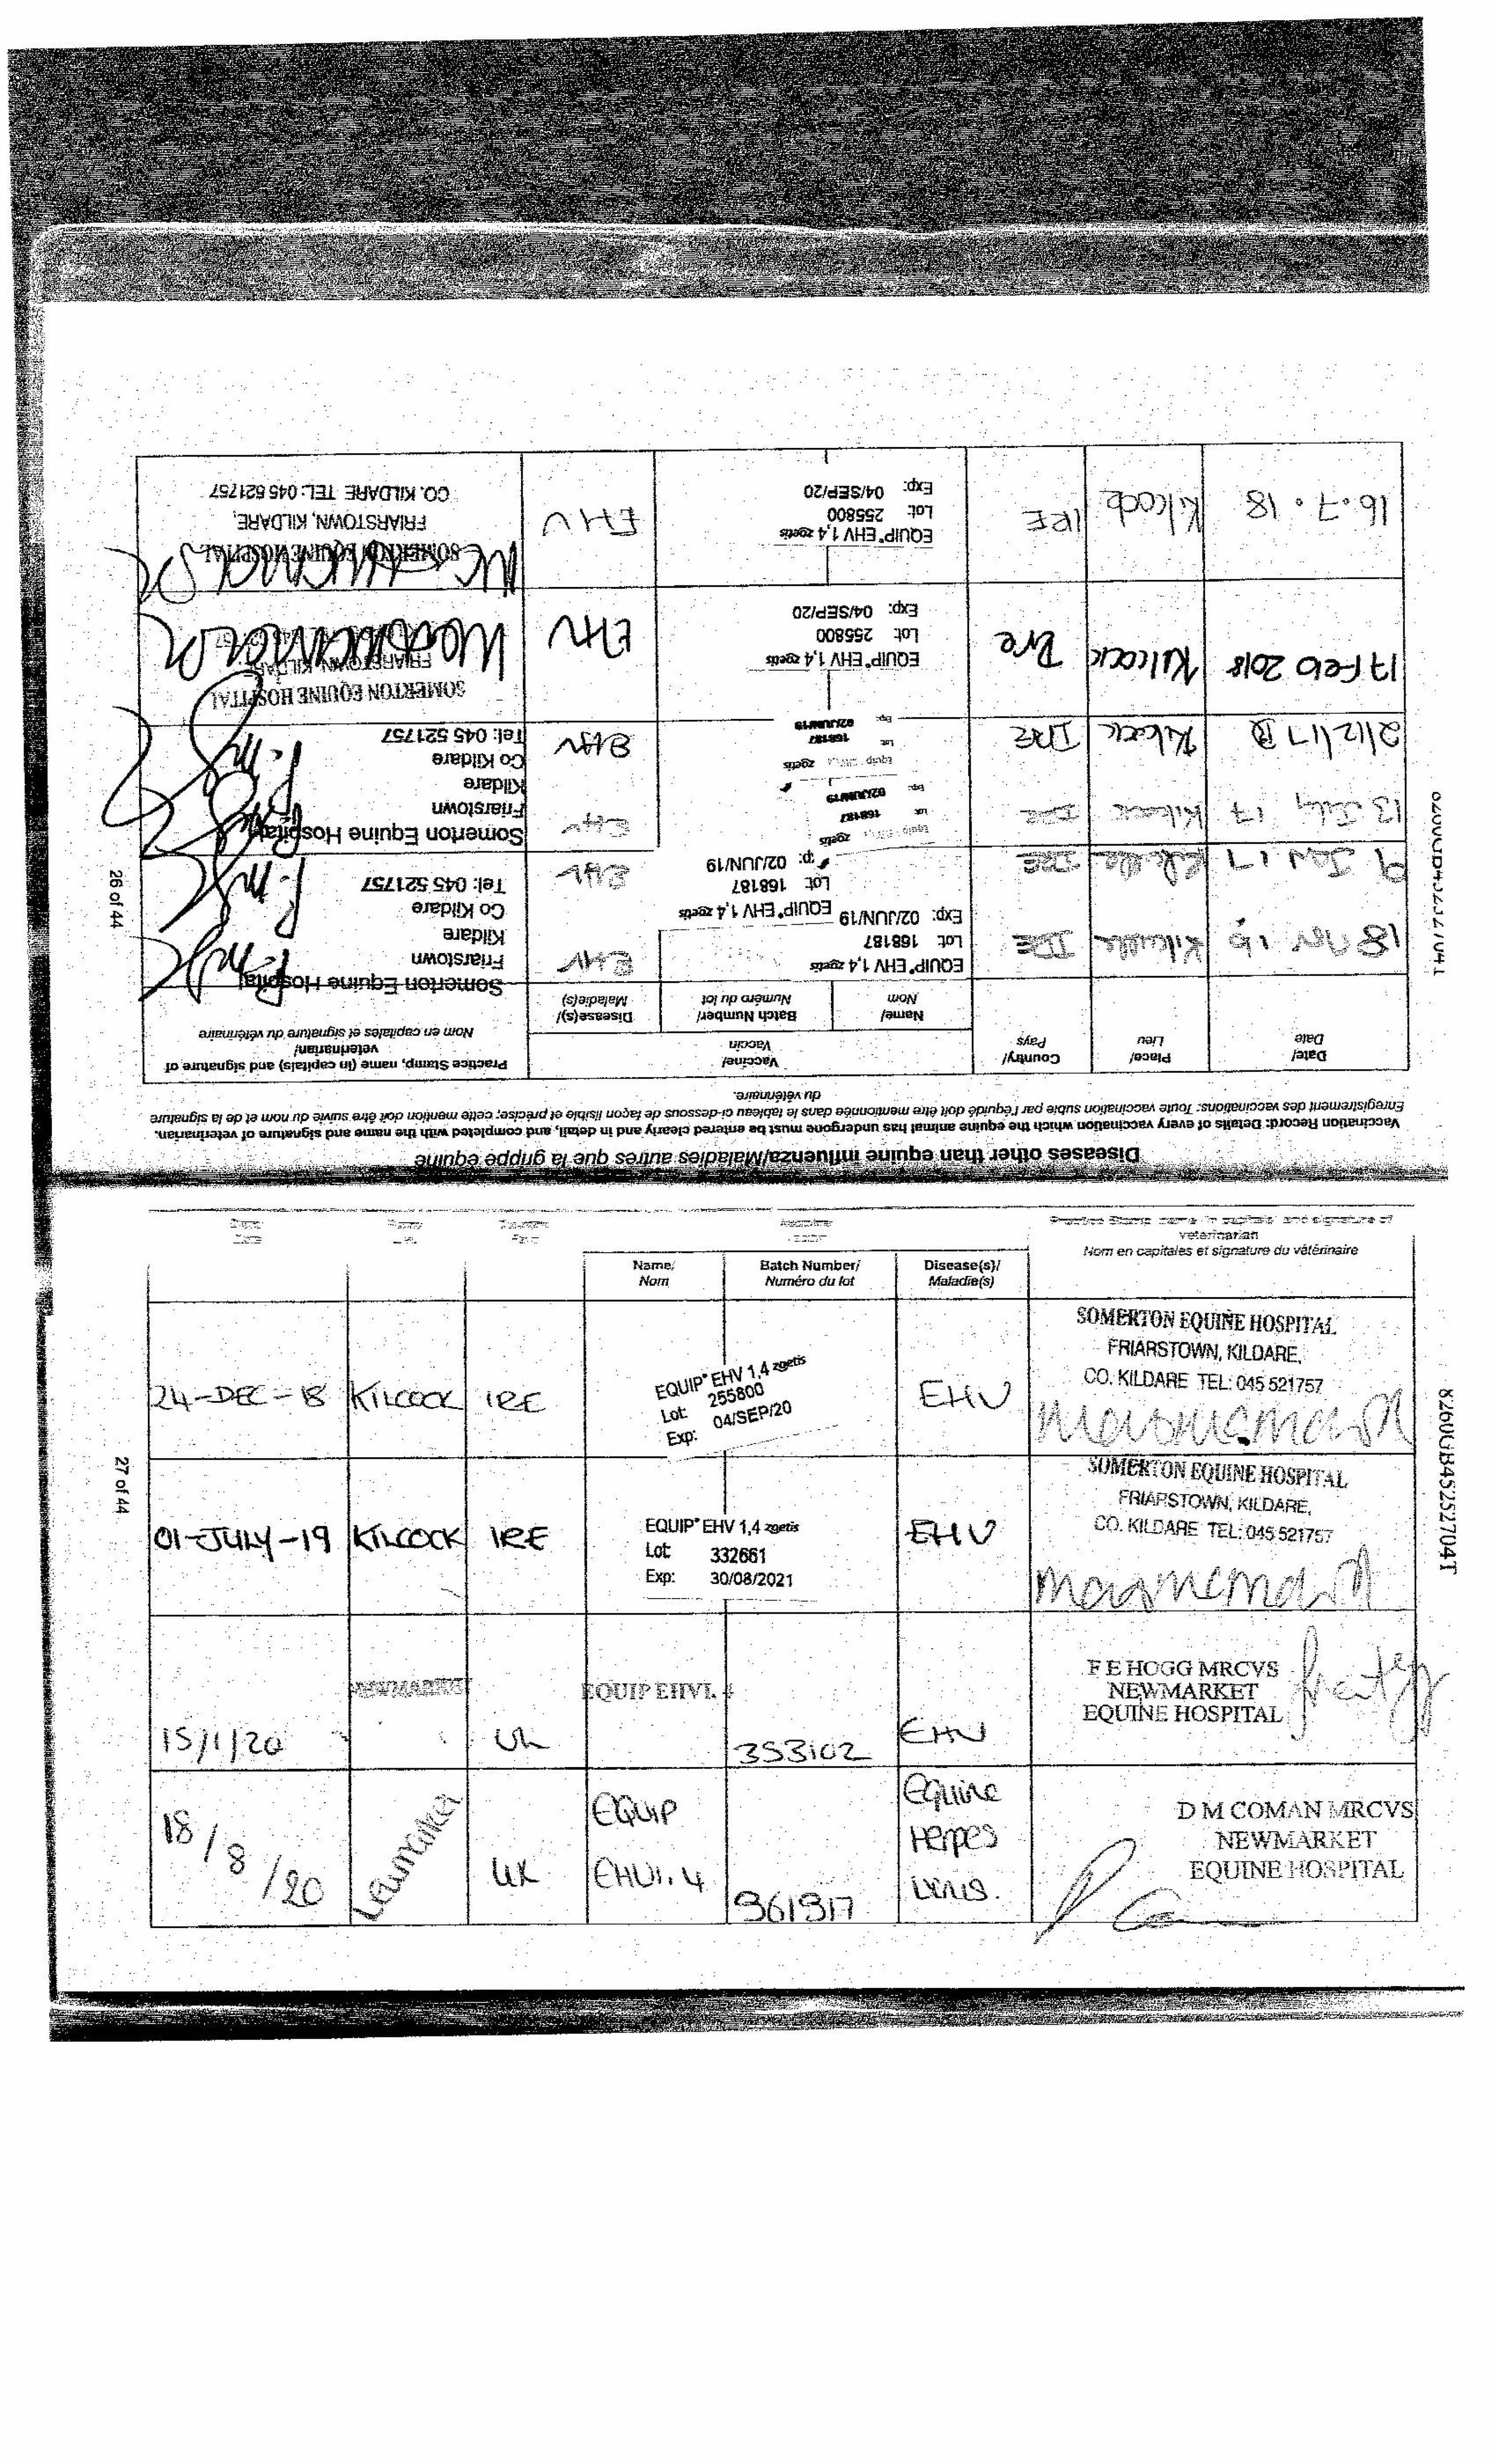 Diseases other than equine influenza/Maladies autres que la grippe équine
Vaccination Record: Details of every vaccination which the equine animal has undergone must be entered clearly and in detail, and completed with the name and signature of veterinarian.
Enregistrement des vaccinations: Toute vaccination subie par l'équidé doit être mentionnée dans le tableau ci-dessous de façon lisible et précise; cette mention doit être suivie du nom et de la signature
du vétérinaire.
Date/ Place/ Country/ Vaccine/ Practice Stamp, name (in capitals) and signature of
Date Lieu Pays Vaccin veterinarian/
Nom en capitales et signature du vétérinaire
Name/ Batch Number/ Disease(s)/
Nom Numéro du lot Maladie(s)
18 Nov 16 IRE EHV
EQUIP EHV 1,4 zoetis
Lot: 168187
Exp: 02/JUN/19
Somerton Equine Hospital
Friarstown
Kildare
Co Kildare
Tel: 045 521757
9 Jan 17 IRE EHV
EQUIP EHV 1,4 zoetis
Lot: 168187
02/JUN/19
13 July 17 Kilcock IRE EHV
zoetis
Lot: 168187
Exp: 02/JUN/19
Somerton Equine Hospital
Friarstown
Kildare
Co Kildare
Tel: 045 521757
2/12/17 Kilcock IRE EHV
Equip zoetis
Lot: 168187
Exp: 02/JUN/19
17 Feb 2018 Kilcock Ire EHV
EQUIP EHV 1,4 zoetis
Lot: 255800
Exp: 04/SEP/20
SOMERTON EQUINE HOSPITAL
FRIARSTOWN, KILDARE
16.7.18 Kilcock IRE EHV
EQUIP EHV 1,4 zoetis
Lot: 255800
Exp: 04/SEP/20
SOMERTON EQUINE HOSPITAL
FRIARSTOWN, KILDARE,
CO. KILDARE TEL: 045 521757
26 of 44
veterinarian
Nom en capitales et signature du vétérinaire
Name/ Batch Number/ Disease(s)/
Nom Numéro du lot Maladie(s)
24-DEC-18 KILCOCK IRE EHV
EQUIP EHV 1,4 zoetis
Lot: 255800
Exp: 04/SEP/20
SOMERTON EQUINE HOSPITAL
FRIARSTOWN, KILDARE,
CO. KILDARE TEL: 045 521757
01-JULY-19 KILCOCK IRE EHV
EQUIP EHV 1,4 zoetis
Lot: 332661
Exp: 30/08/2021
SOMERTON EQUINE HOSPITAL
FRIARSTOWN, KILDARE,
CO. KILDARE TEL: 045 521757
15/1/20 NEWMARKET UK EQUIP EHV1,4 353102 EHV
F E HOGG MRCVS
NEWMARKET
EQUINE HOSPITAL
18/8/20 Newmarket UK EQUIP EHV1,4 361917 Equine Herpes virus.
D M COMAN MRCVS
NEWMARKET
EQUINE HOSPITAL
27 of 44
826UGB45252704T